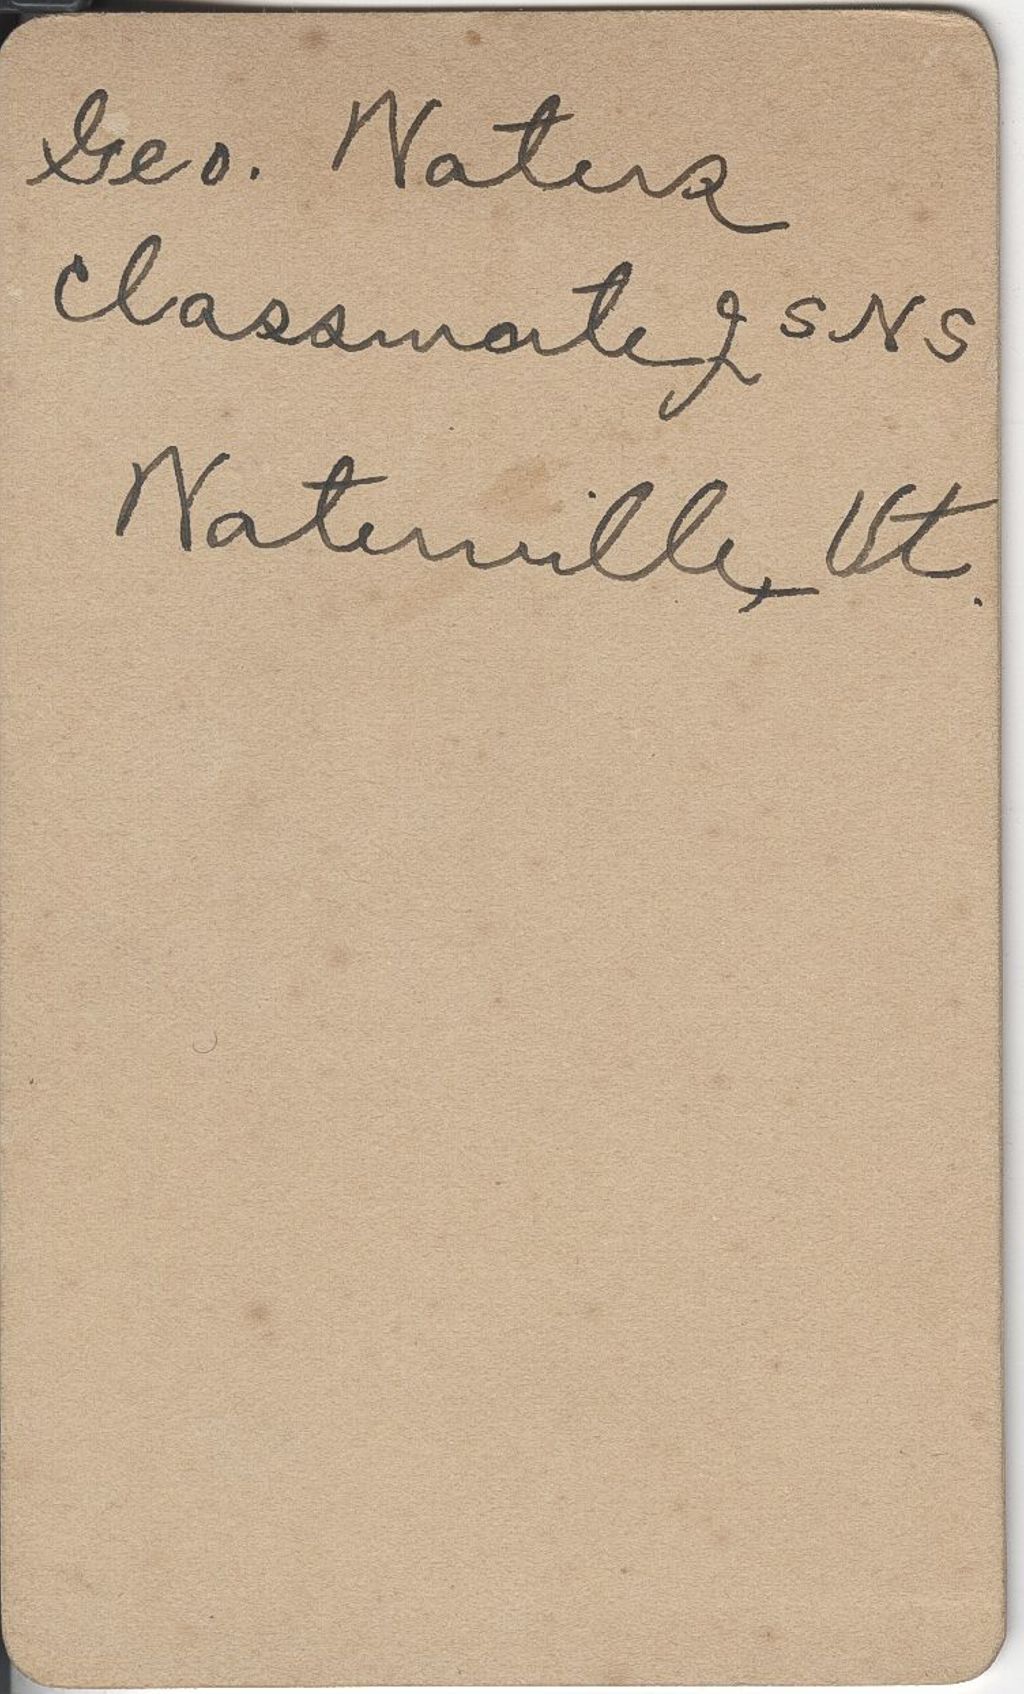 Geo. Waters
Classmate of SNS
Waterville, Vt.